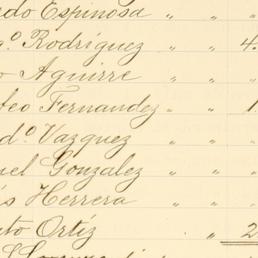 do Espinosa " "
gº. Rodríguez " " 4.
o Aguirre " "
eo Fernandez " " 1
dº. Vazquez " "
uel Gonzalez " "
s Herrera " "
to Ortíz " 2